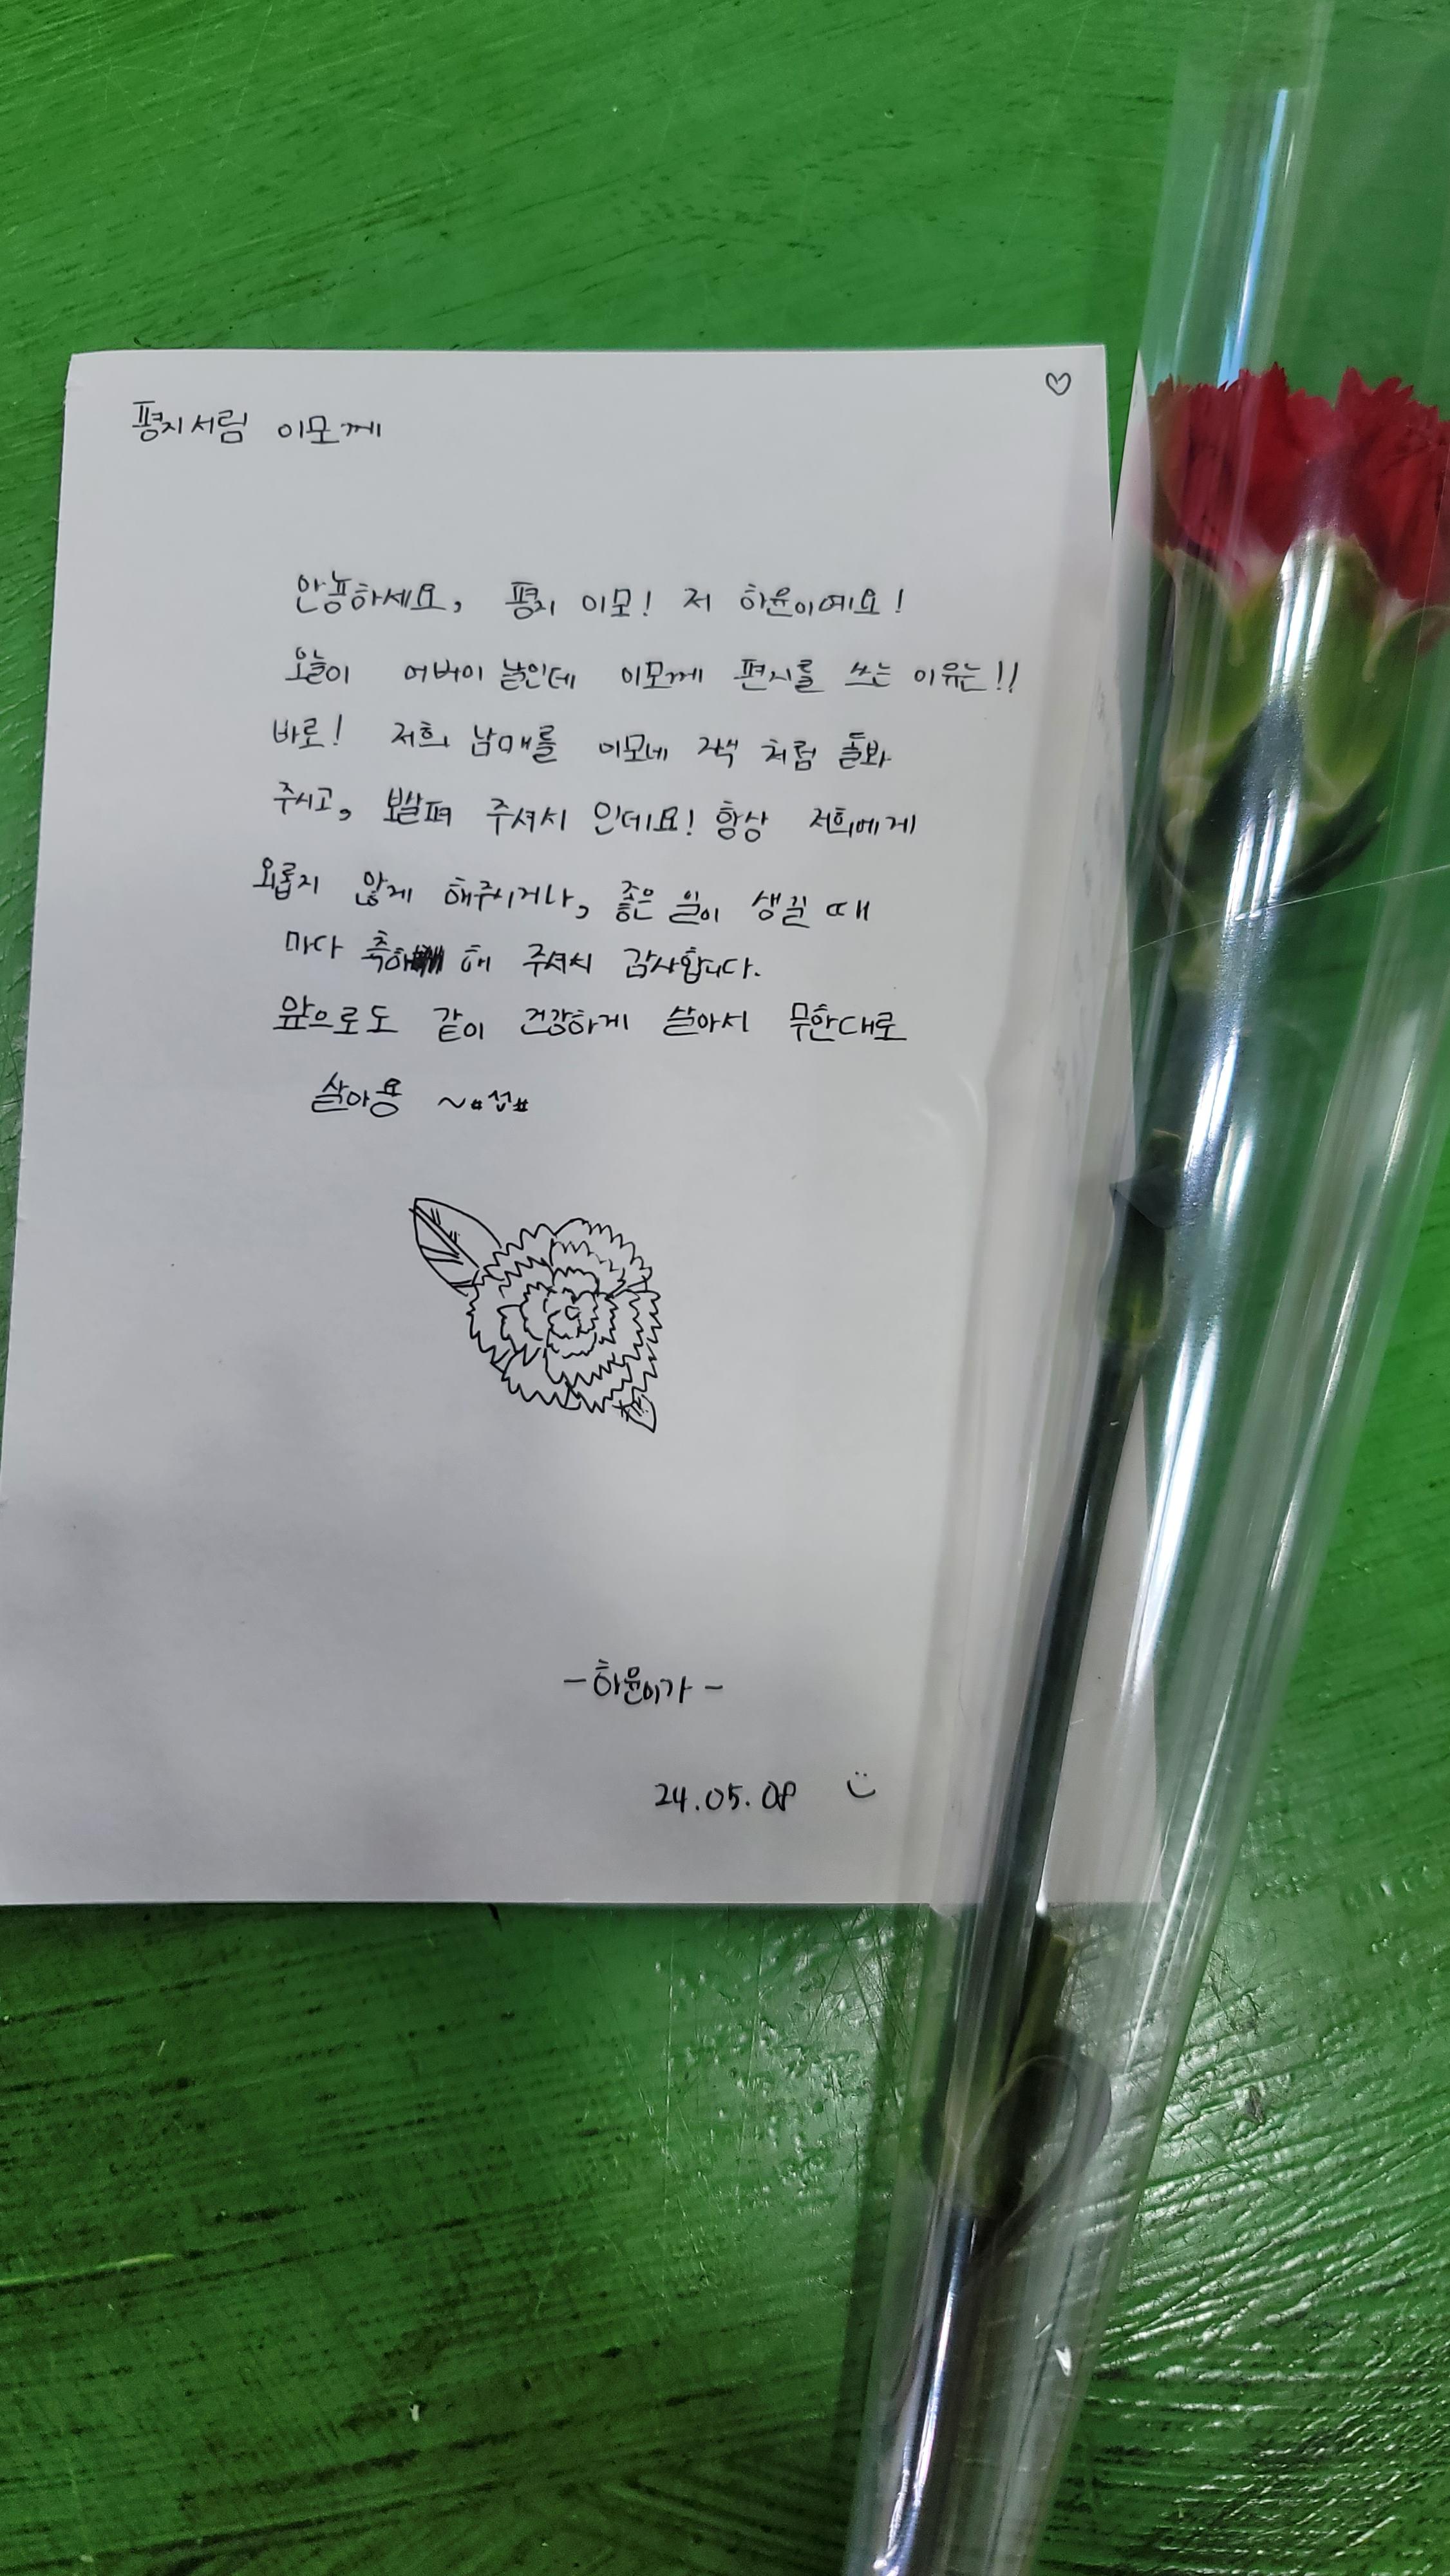 평지서림 이모께
안뇽하세요, 평지 이모! 저 하윤이예요!
오늘이 어버이 날인데 이모께 편지를 쓰는 이유는!!
바로! 저희 남매를 이모네 자식 처럼 돌봐
주시고, 보살펴 주셔서 인데요! 항상 저희에게
외롭지 않게 해주시거나, 좋은 일이 생길 때
마다 축하 해 주셔서 감사합니다.
앞으로도 같이 건강하게 살아서 무한대로
살아용 ~
-하윤이가-
24.05.08